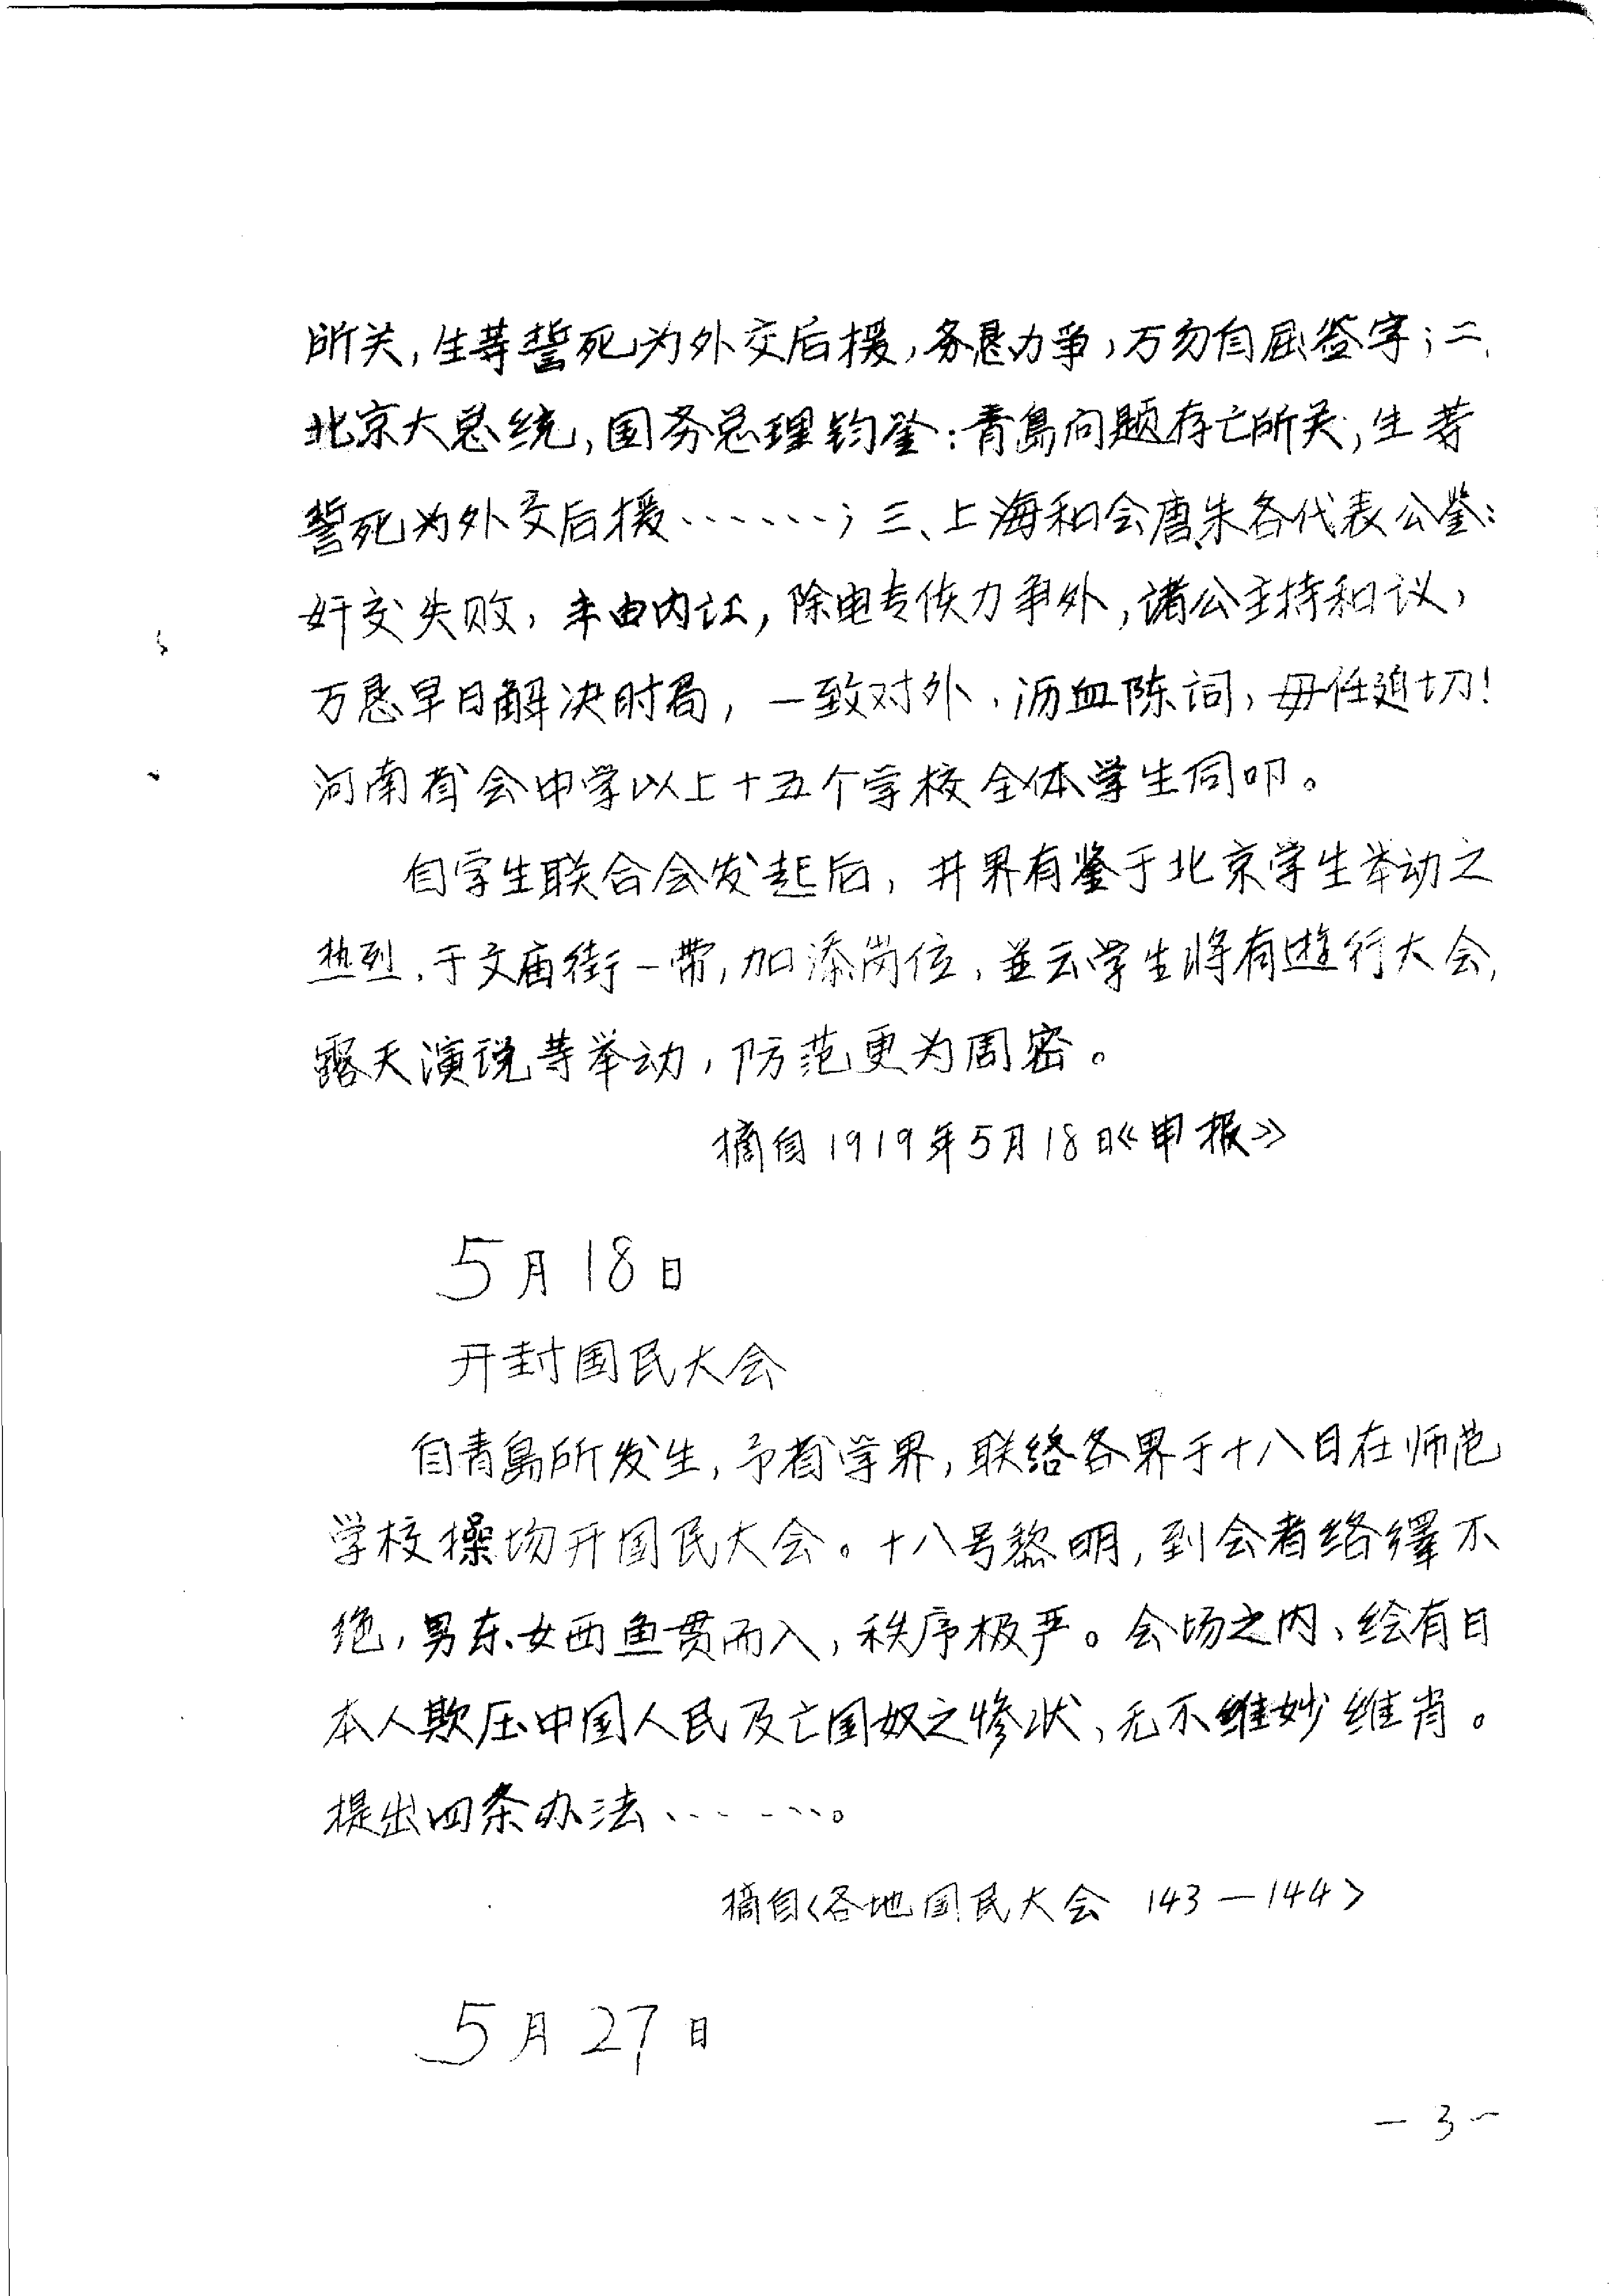 所关，生等誓死为外交后援，务恳力争，万勿自屈签字；二、
北京大总统，国务总理钧鉴：青島问题存亡所关，生等
誓死为外交后援……；三、上海和会唐、朱各代表公鉴：
奸交失败，半由内讧，除电专使力争外，诸公主持和议，
万恳早日解决时局，一致对外、沥血陈词，毋任迫切！
河南省会中学以上十五个学校全体学生同叩。
自学生联合会发起后，井界有鉴于北京学生举动之
热烈、于文庙街一带，加添岗位、並云学生将有遊行大会，
露天演说等举动，防范更为周密。
摘自1919年5月18日《申报》
5月18日
开封国民大会
自青島所发生，予省学界，联络各界于十八日在师范
学校操场开国民大会。十八号黎明，到会者络绎不
绝，男东、女西鱼贯而入，秩序极严。会场之内、绘有日
本人欺压中国人民及亡国奴之惨状、无不维妙维肖。
提出四条办法……。
摘自〈各地国民大会 143—144〉
5月27日
—3—